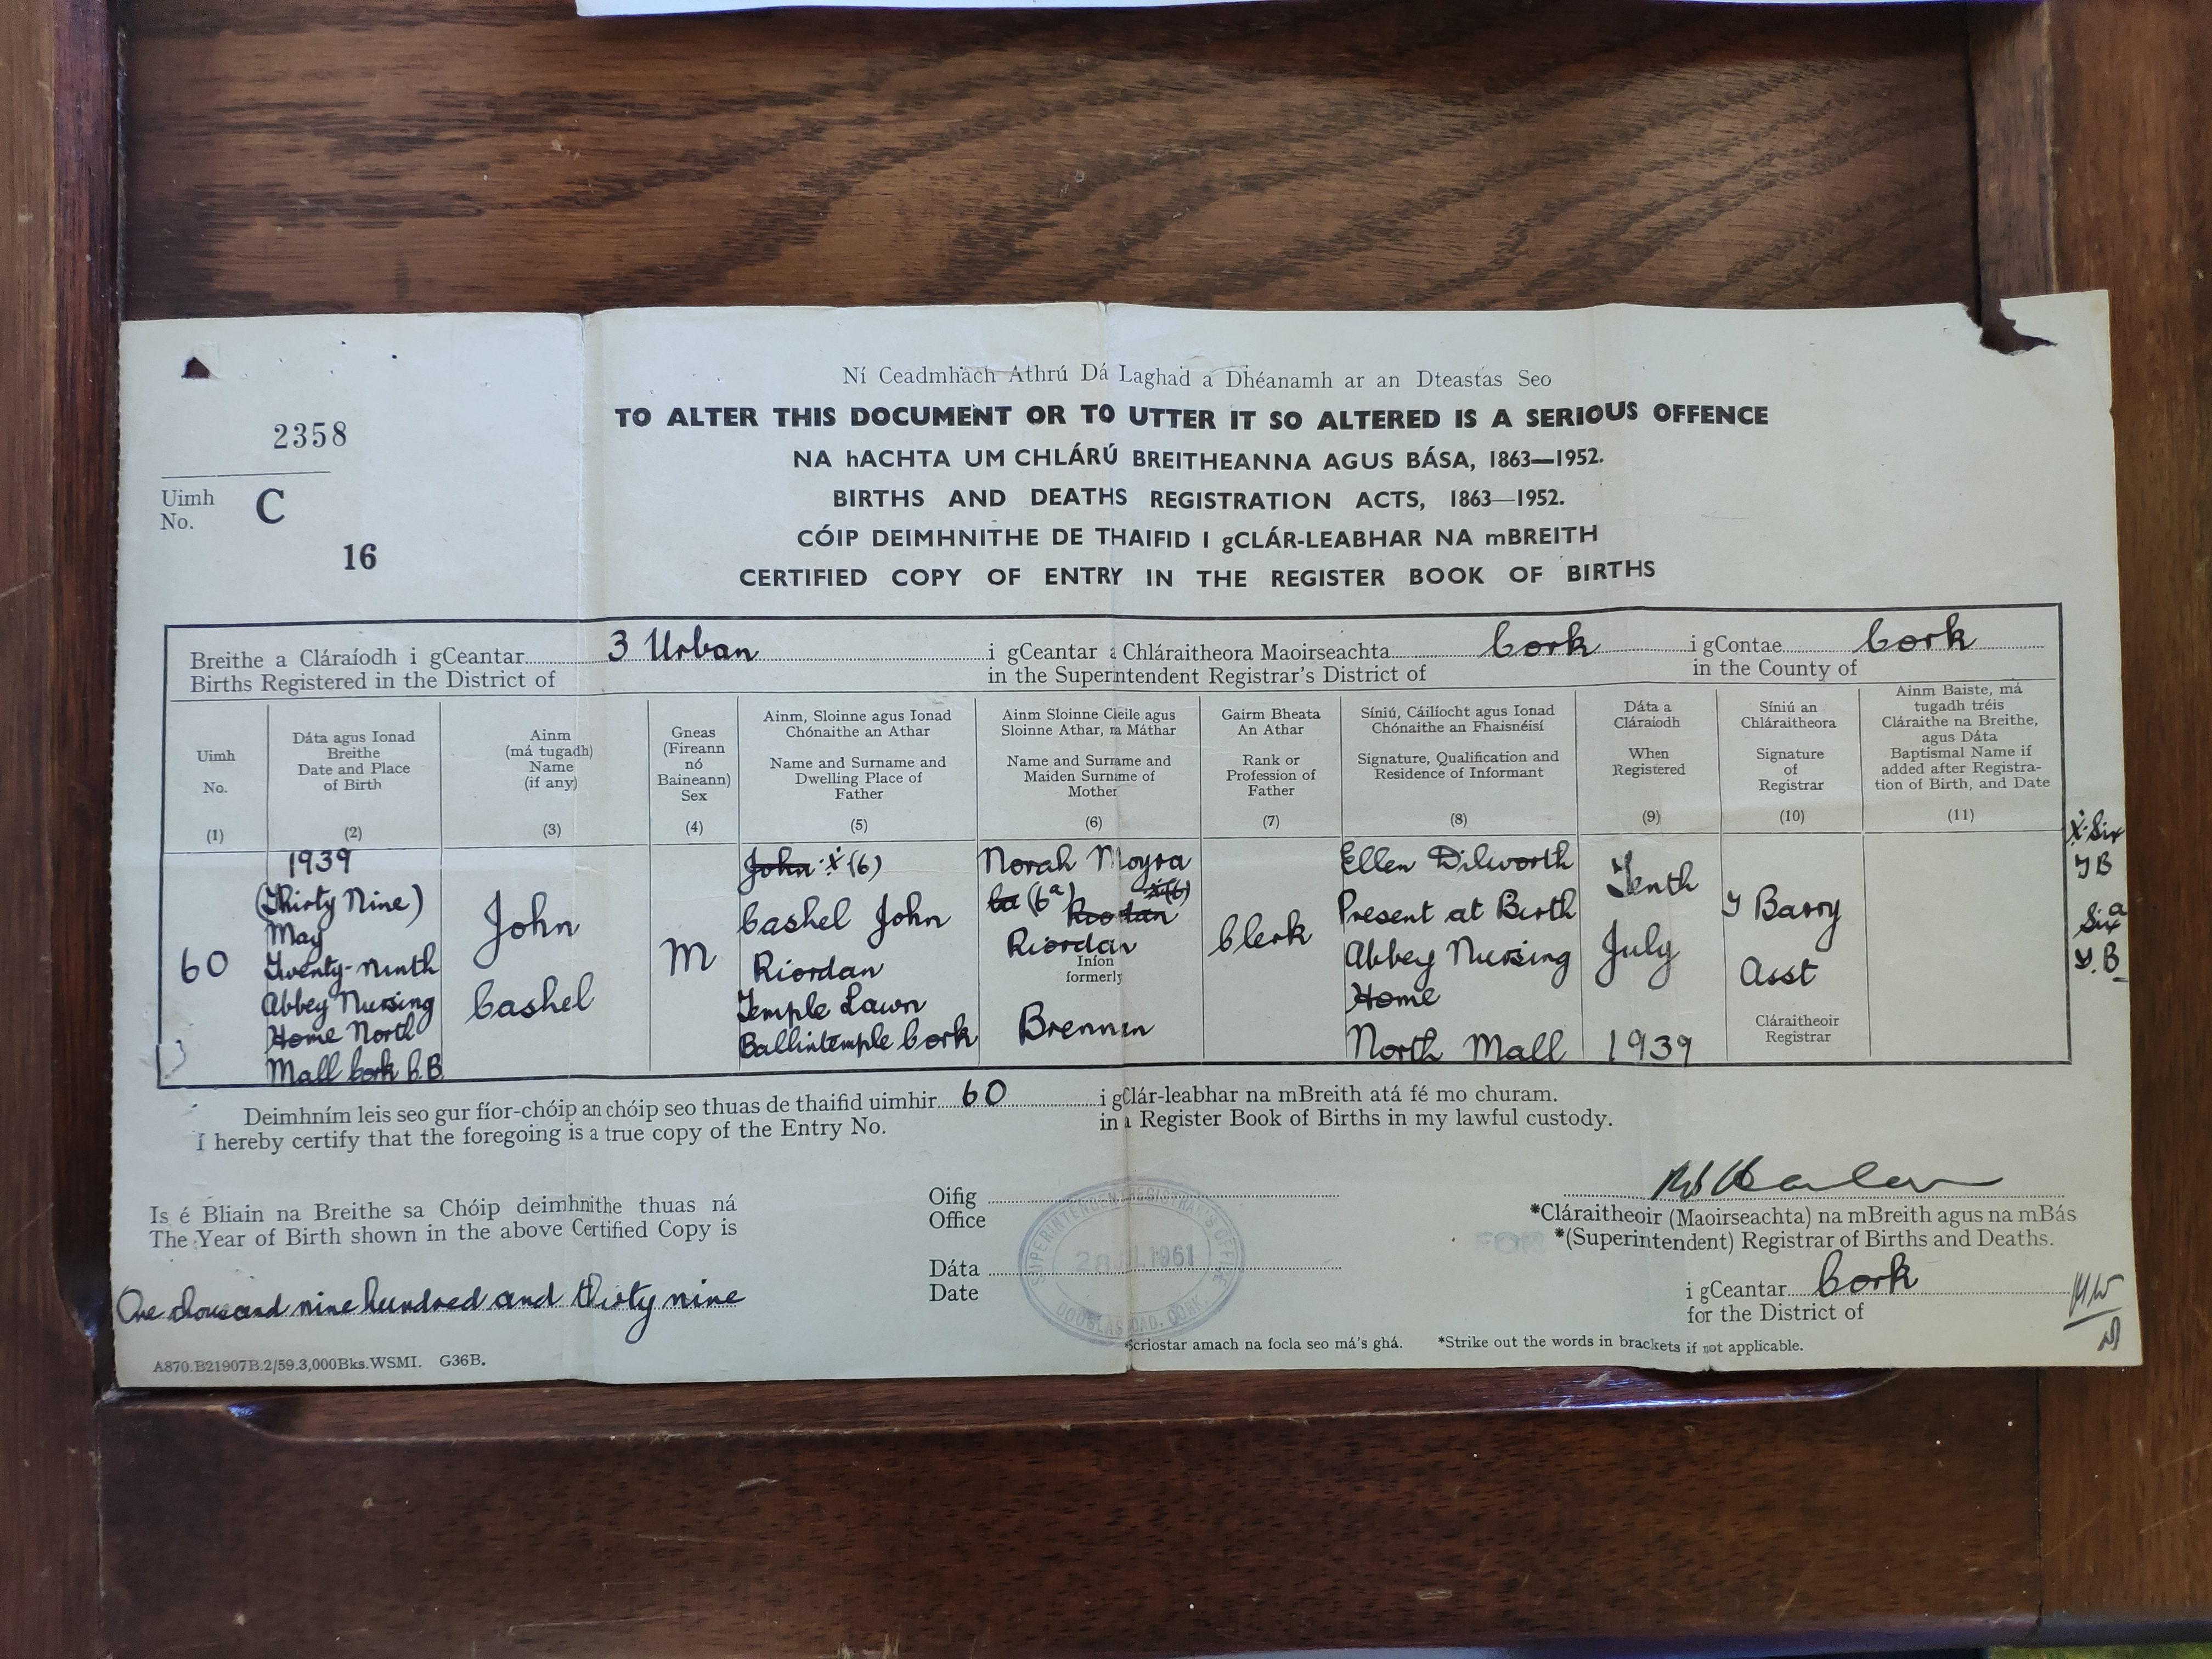 Ní Ceadmhach Athrú Dá Laghad a Dhéanamh ar an Dteastas Seo
TO ALTER THIS DOCUMENT OR TO UTTER IT SO ALTERED IS A SERIOUS OFFENCE
NA hACHTA UM CHLÁRÚ BREITHEANNA AGUS BÁSA, 1863—1952.
BIRTHS AND DEATHS REGISTRATION ACTS, 1863—1952.
CÓIP DEIMHNITHE DE THAIFID I gCLÁR-LEABHAR NA mBREITH
CERTIFIED COPY OF ENTRY IN THE REGISTER BOOK OF BIRTHS
2358
Uimh
No. C
16
Breithe a Cláraíodh i gCeantar 3 Urban i gCeantar a Chláraitheora Maoirseachta Cork i gContae Cork
Births Registered in the District of in the Superintendent Registrar's District of in the County of
Uimh
No.
(1)
Dáta agus Ionad
Breithe
Date and Place
of Birth
(2)
Ainm
(má tugadh)
Name
(if any)
(3)
Gneas
(Fireann
nó
Baineann)
Sex
(4)
Ainm, Sloinne agus Ionad
Chónaithe an Athar
Name and Surname and
Dwelling Place of
Father
(5)
Ainm Sloinne Cleile agus
Sloinne Athar, na Máthar
Name and Surname and
Maiden Surname of
Mother
(6)
Gairm Bheata
An Athar
Rank or
Profession of
Father
(7)
Síniú, Cáilíocht agus Ionad
Chónaithe an Fhaisnéisí
Signature, Qualification and
Residence of Informant
(8)
Dáta a
Cláraíodh
When
Registered
(9)
Síniú an
Chláraitheora
Signature
of
Registrar
(10)
Ainm Baiste, má
tugadh tréis
Cláraithe na Breithe,
agus Dáta
Baptismal Name if
added after Registra-
tion of Birth, and Date
(11)
60
1939
(Thirty Nine)
May
Twenty-ninth
Abbey Nursing
Home North
Mall Cork C.B.
John
Cashel
M
John X (6)
Cashel John
Riordan
Temple Lawn
Ballintemple Cork
Norah Moyra
(6a) Riordan X(6)
Riordan
Iníon
formerly
Brennan
Clerk
Ellen Dilworth
Present at Birth
Abbey Nursing
Home
North Mall
Tenth
July
1939
Y Barry
Asst
Cláraitheoir
Registrar
X Six
Y B
Six a
Y.B
Deimhním leis seo gur fíor-chóip an chóip seo thuas de thaifid uimhir 60 i gClár-leabhar na mBreith atá fé mo churam.
I hereby certify that the foregoing is a true copy of the Entry No. in a Register Book of Births in my lawful custody.
Is é Bliain na Breithe sa Chóip deimhnithe thuas ná
The Year of Birth shown in the above Certified Copy is
One thousand nine hundred and thirty nine
Oifig
Office
Dáta
Date
SUPERINTENDENT REGISTRAR'S OFFICE
28 JUL 1961
DOUGLAS ROAD, CORK.
FOR
*Cláraitheoir (Maoirseachta) na mBreith agus na mBás
*(Superintendent) Registrar of Births and Deaths.
i gCeantar Cork
for the District of
*Scriostar amach na focla seo má's ghá. *Strike out the words in brackets if not applicable.
A870.B21907B.2/59.3,000Bks.WSMI. G36B.